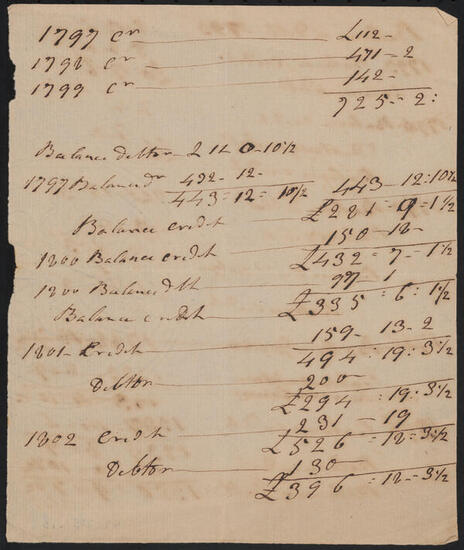 1797 Cr £112-
1798 Cr 471-2
1799 Cr 142-
725-2:
Balance debtor £11-0-10½
1797 Balance dr 432-12-
443=12=10½ 443-12:10½
£281=9=1½
Balance credit 150-18-
1800 Balance credit £432=7-1½
1800 Balance dbt 97-1
£335=6:1½
Balance credit
159-13-2
1801- Credit 494:19:3½
Debtor 200-
£294:19:3½
231-19
1802 Credit £526=18=3½
Debtor 130-
£396=18-3½